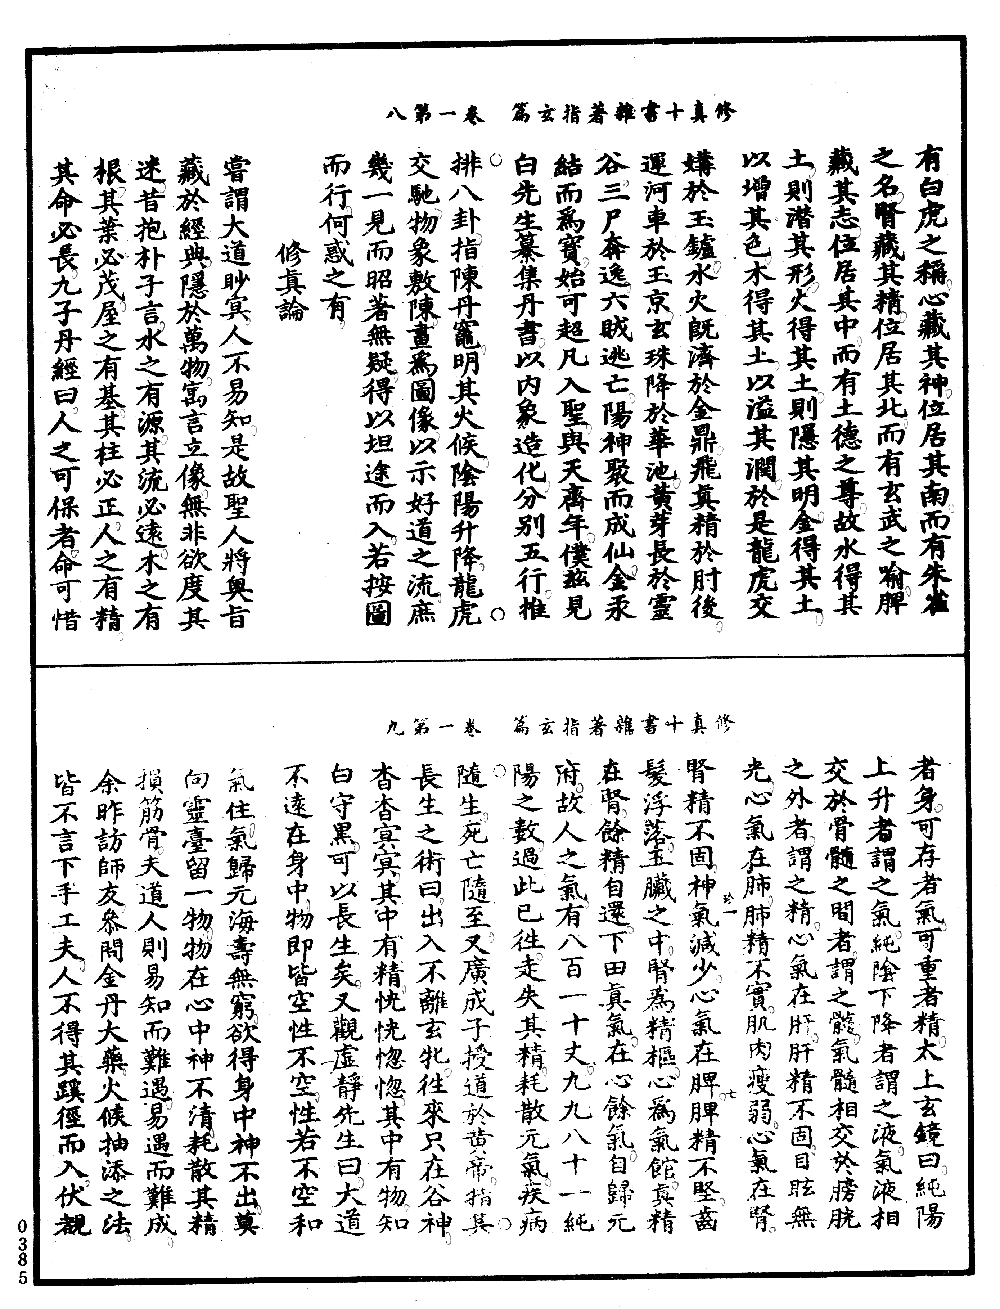 修真十書雜著指玄篇　卷一第八
有白虎之稱心藏其神位居其南而有朱雀
之名腎藏其精位居其北而有玄武之喻脾
藏其志位居其中而有土德之尊故水得其
土則潛其形火得其土則隱其明金得其土
以增其色木得其土以溢其潤於是龍虎交
媾於玉鑪水火既濟於金鼎飛真精於肘後
運河車於玉京玄珠降於華池黃芽長於靈
谷三尸奔逸六賊逃亡陽神聚而成仙金汞
結而為寶始可超凡入聖與天齊年僕茲見
白先生纂集丹書以內象造化分別五行推
排八卦指陳丹竈明其火候陰陽升降龍虎
交馳物象敷陳畫為圖像以示好道之流庶
幾一見而昭著無疑得以坦途而入若按圖
而行何惑之有
修真論
嘗謂大道眇冥人不易知是故聖人將奧旨
藏於經典隱於萬物寓言立像無非欲度其
迷昔抱朴子言水之有源其流必遠木之有
根其葉必茂屋之有基其柱必正人之有精
其命必長九子丹經曰人之可保者命可惜
修真十書雜著指玄篇　卷一第九
者身可存者氣可重者精太上玄鏡曰純陽
上升者謂之氣純陰下降者謂之液氣液相
交於骨髓之間者謂之髓氣髓相交於膀胱
之外者謂之精心氣在肝肝精不固目眩無
光心氣在肺肺精不實肌肉瘦弱心氣在腎
腎精不固神氣減少心氣在脾脾精不堅齒
髮浮落五臟之中腎為精樞心為氣館真精
在腎餘精自還下田真氣在心餘氣自歸元
府故人之氣有八百一十丈九九八十一純
陽之數過此已往走失其精耗散元氣疾病
隨生死亡隨至又廣成子授道於黃帝指其
長生之術曰出入不離玄牝往來只在谷神
杳杳冥冥其中有精恍恍惚惚其中有物知
白守黑可以長生矣又觀虛靜先生曰大道
不遠在身中物即皆空性不空性若不空和
氣住氣歸元海壽無窮欲得身中神不出莫
向靈臺留一物物在心中神不清耗散其精
損筋骨夫道人則易知而難遇易遇而難成
余昨訪師友參問金丹大藥火候抽添之法
皆不言下手工夫人不得其蹊徑而入伏覩
0385